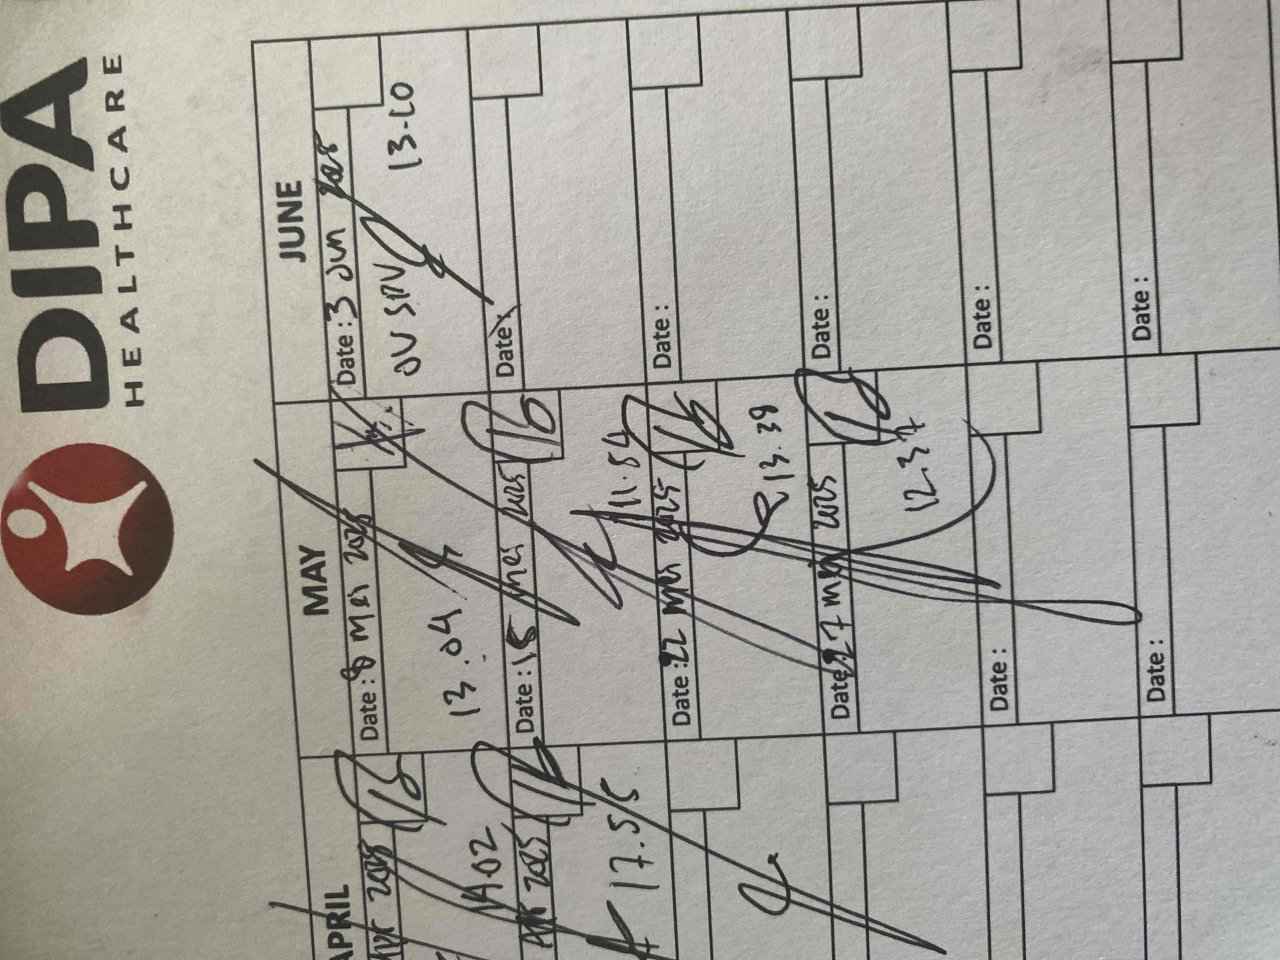 DIPA
HEALTHCARE
APRIL
Apr 2025
14.02
Apr 2025
17.55
MAY
Date : 8 Mei 2025
13.04
Date : 15 Mei 2025
11.54
Date : 22 Mei 2025
13.39
Date : 27 Mei 2025
12.37
Date :
Date :
JUNE
Date : 3 Jun 2025
JV SPV
13-20
Date :
Date :
Date :
Date :
Date :